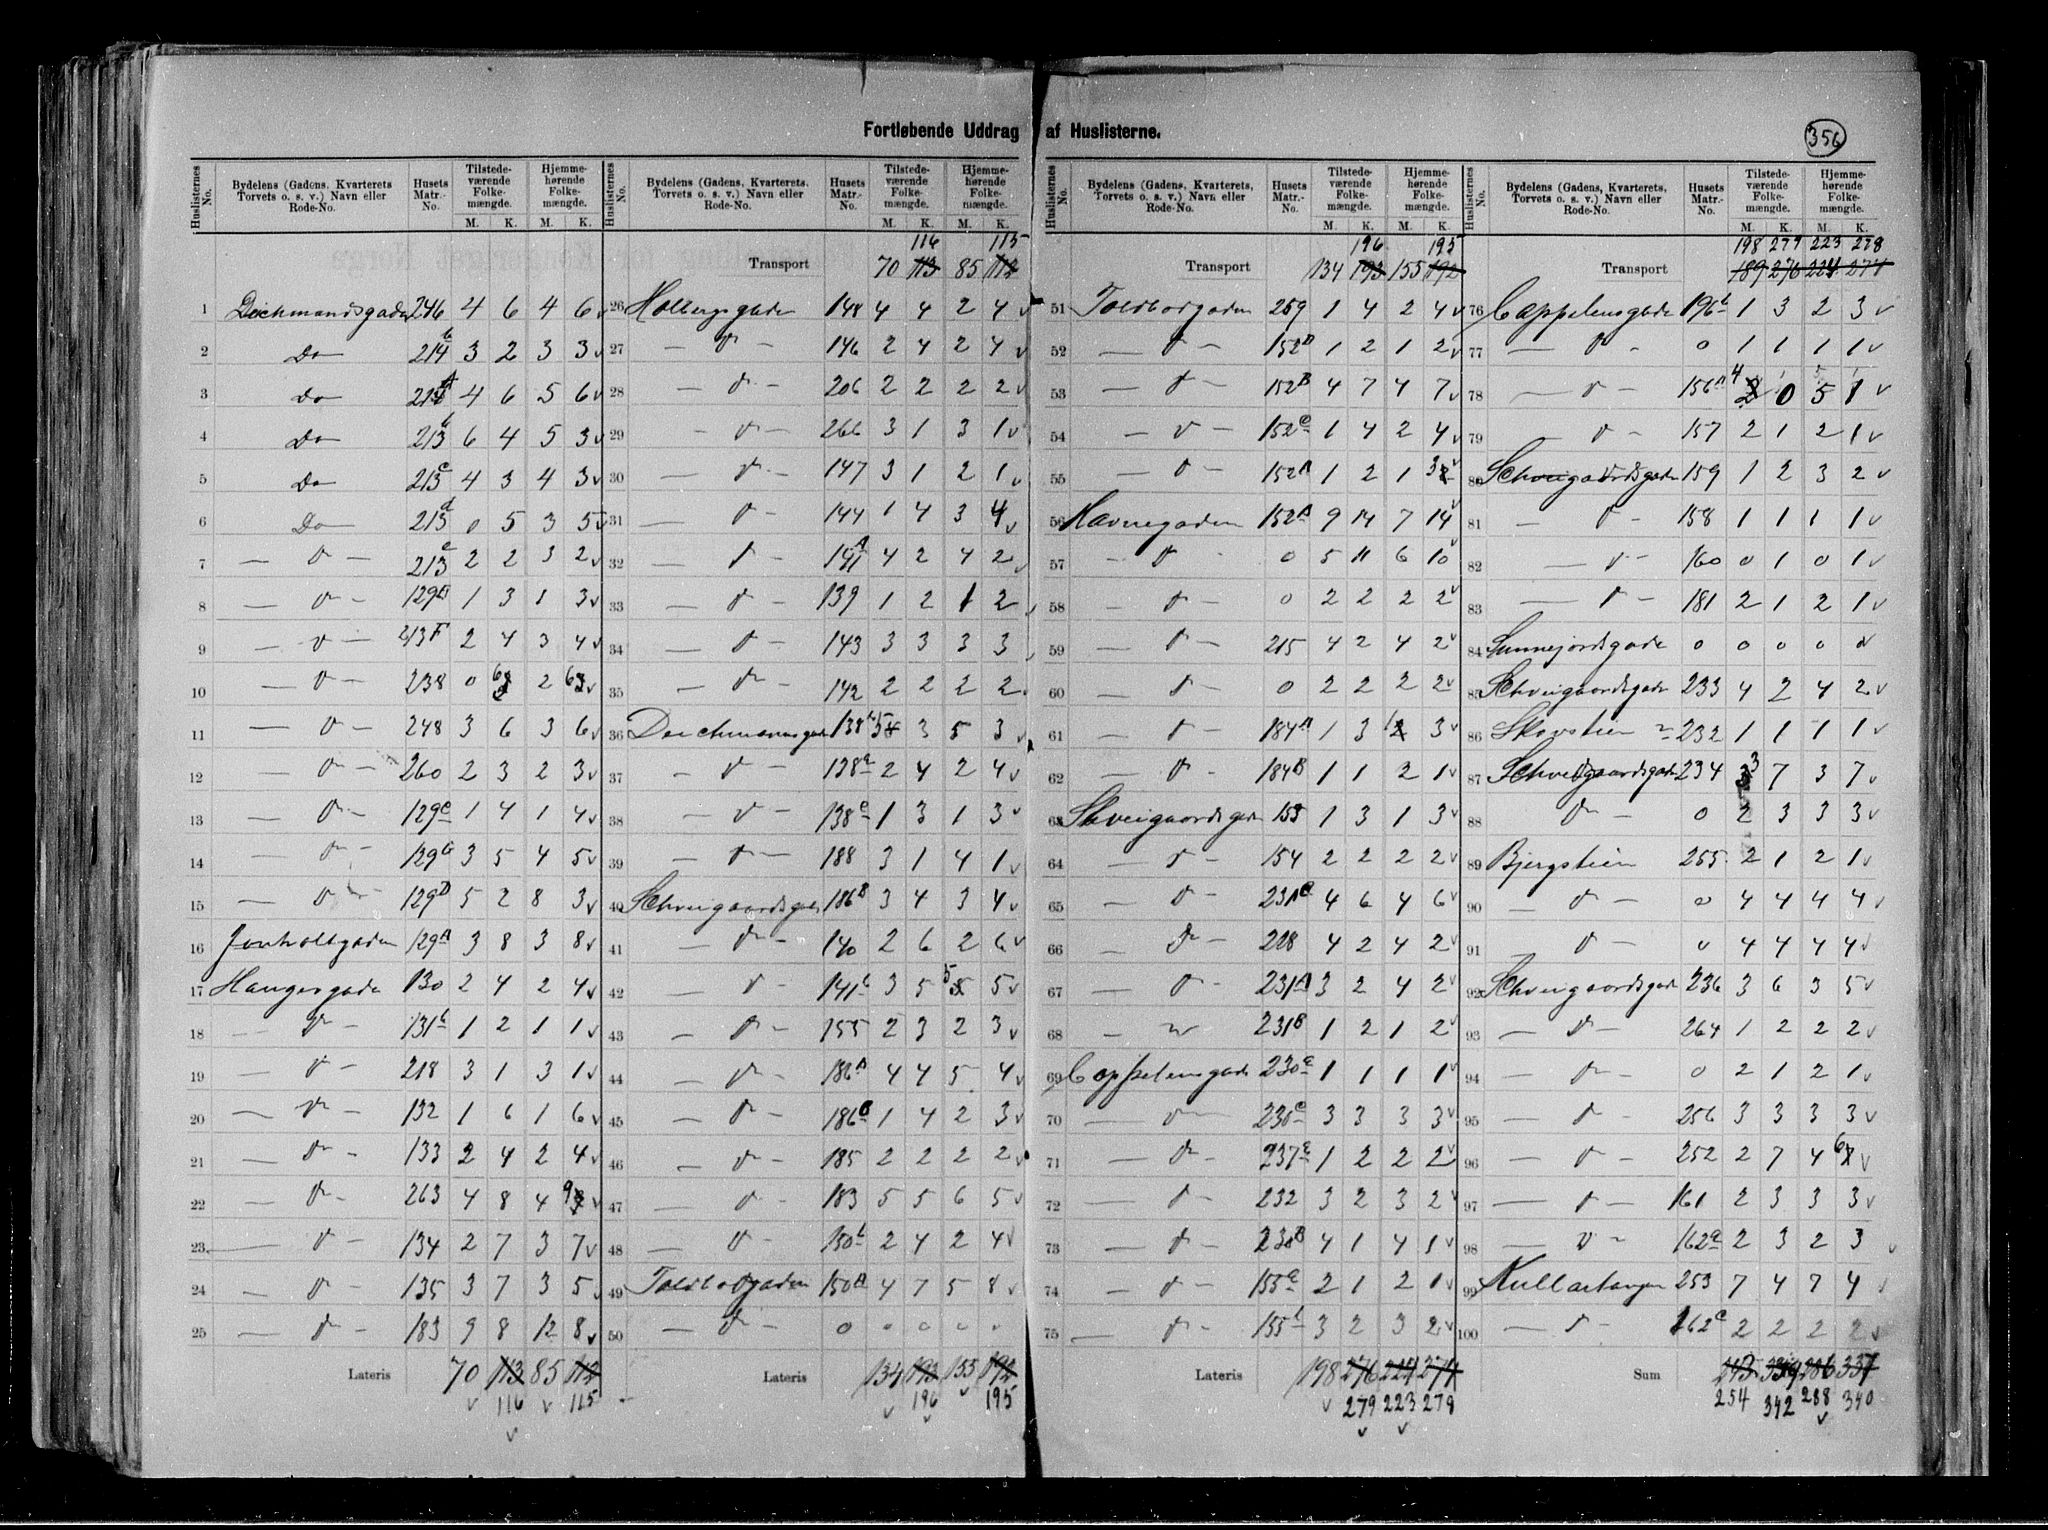 Fortløbende Uddrag af Huslisterne.
356
Huslisternes No. | Bydelens (Gadens, Kvarterets, Torvets o. s. v.) Navn eller Rode-No. | Husets Matr.-No. | Tilstedeværende Folkemængde. M. K. | Hjemmehørende Folkemængde. M. K.
1 Deichmandsgaden 246 4 6 4 6 v
2 Do 214b 3 2 3 3 v
3 Do 214A 4 6 5 6 v
4 Do 213b 6 4 5 3 v
5 Do 213c 4 3 4 3 v
6 Do 213d 0 5 3 5 v
7 — " — 213e 2 2 3 2 v
8 — " — 129 1 3 1 3 v
9 — " — 213F 2 4 3 4 v
10 — " — 238 0 6 2 6 v
11 — " — 248 3 6 3 6 v
12 — " — 260 2 3 2 3 v
13 — " — 129c 1 4 1 4 v
14 — " — 129 3 5 4 5 v
15 — " — 129D 5 2 8 3 v
16 Jonholtgaden 129A 3 8 3 8 v
17 Haugesgade 130 2 4 2 4 v
18 — " — 131b 1 2 1 1 v
19 — " — 218 3 1 3 1 v
20 — " — 132 1 6 1 6 v
21 — " — 133 2 4 2 4 v
22 — " — 263 4 8 4 9 v
23 — " — 134 2 7 3 7 v
24 — " — 135 3 7 3 5 v
25 — " — 183 9 8 12 8 v
Lateris 70 113 85 112
116 115
Huslisternes No. | Bydelens (Gadens, Kvarterets, Torvets o. s. v.) Navn eller Rode-No. | Husets Matr.-No. | Tilstedeværende Folkemængde. M. K. | Hjemmehørende Folkemængde. M. K.
116 115
Transport 70 113 85 112
26 Holbergsgaden 148 4 4 2 4 v
27 — " — 146 2 4 2 4 v
28 — " — 206 2 2 2 2 v
29 — " — 266 3 1 3 1 v
30 — " — 147 3 1 2 1 v
31 — " — 144 1 4 3 4 v
32 — " — 191A 4 2 4 2 v
33 — " — 139 1 2 1 2
34 — " — 143 3 3 3 3
35 — " — 142 2 2 2 2
36 Deichmansgade 138b 5 3 5 3 v
37 — " — 138c 2 4 2 4 v
38 — " — 138c 1 3 1 3 v
39 — " — 188 3 1 4 1 v
40 Schveigaardsgade 186B 3 4 3 4 v
41 — " — 140 2 6 2 6 v
42 — " — 141b 3 5 5 5 v
43 — " — 155 2 3 2 3 v
44 — " — 186A 4 4 5 4 v
45 — " — 186C 1 4 2 3 v
46 — " — 185 2 2 2 2 v
47 — " — 183 5 5 6 5 v
48 — " — 150b 2 4 2 4 v
49 Toldbodgaden 150A 4 7 5 8 v
50 — " — 0 0 0 0 0
Lateris 134 193 155 192
196 195
Huslisternes No. | Bydelens (Gadens, Kvarterets, Torvets o. s. v.) Navn eller Rode-No. | Husets Matr.-No. | Tilstedeværende Folkemængde. M. K. | Hjemmehørende Folkemængde. M. K.
196 195
Transport 134 193 155 192
51 Toldbodgaden 259 1 4 2 4 v
52 — " — 152D 1 2 1 2 v
53 — " — 152B 4 7 4 7 v
54 — " — 152C 1 4 2 4 v
55 — " — 152A 1 2 1 3 v
56 Havnegaden 152A 9 14 7 14 v
57 — " — 0 5 11 6 10 v
58 — " — 0 2 2 2 2 v
59 — " — 215 4 2 4 2 v
60 — " — 0 2 2 2 2 v
61 — " — 184A 1 3 1 3 v
62 — " — 184B 1 1 2 1 v
63 Schveigaardsgade 153 1 3 1 3 v
64 — " — 154 2 2 2 2 v
65 — " — 231C 4 6 4 6 v
66 — " — 228 4 2 4 2 v
67 — " — 231A 3 2 4 2 v
68 — " — 231B 1 2 1 2 v
69 Cappelensgade 230c 1 1 1 1 v
70 — " — 230c 3 3 3 3 v
71 — " — 237c 1 2 2 2 v
72 — " — 232 3 2 3 2 v
73 — " — 230B 4 1 4 1 v
74 — " — 155c 2 1 2 1 v
75 — " — 155b 3 2 3 2 v
Lateris 198 276 224 274
279 223 278
Huslisternes No. | Bydelens (Gadens, Kvarterets, Torvets o. s. v.) Navn eller Rode-No. | Husets Matr.-No. | Tilstedeværende Folkemængde. M. K. | Hjemmehørende Folkemængde. M. K.
198 279 223 278
Transport 189 276 224 274
76 Cappelensgade 196b 1 3 2 3 v
77 — " — 0 1 1 1 1 v
78 — " — 156A 4 0 5 1 v
79 — " — 157 2 1 2 1 v
80 Schveigaardsgade 159 1 2 3 2 v
81 — " — 158 1 1 1 1 v
82 — " — 160 0 1 0 1 v
83 — " — 181 2 1 2 1 v
84 Sunnejordsgade 0 0 0 0 0
85 Schveigaardsgade 233 4 2 4 2 v
86 Skovstien 232 1 1 1 1 v
87 Schveigaardsgade 234 3 7 3 7 v
88 Do 0 2 3 3 3 v
89 Bjergstien 255 2 1 2 1 v
90 — " — 0 4 4 4 4 v
91 — " — 0 4 4 4 4 v
92 Schveigaardsgade 236 3 6 3 5 v
93 — " — 264 1 2 2 2 v
94 — " — 0 2 1 2 1 v
95 — " — 256 3 3 3 3 v
96 — " — 252 2 7 4 6 v
97 — " — 161 2 3 3 3 v
98 — " — 162c 2 3 2 3 v
99 Kullartangen 253 7 4 7 4
100 — " — 162c 2 2 2 2 v
Sum 243 339 286 337
254 342 288 340